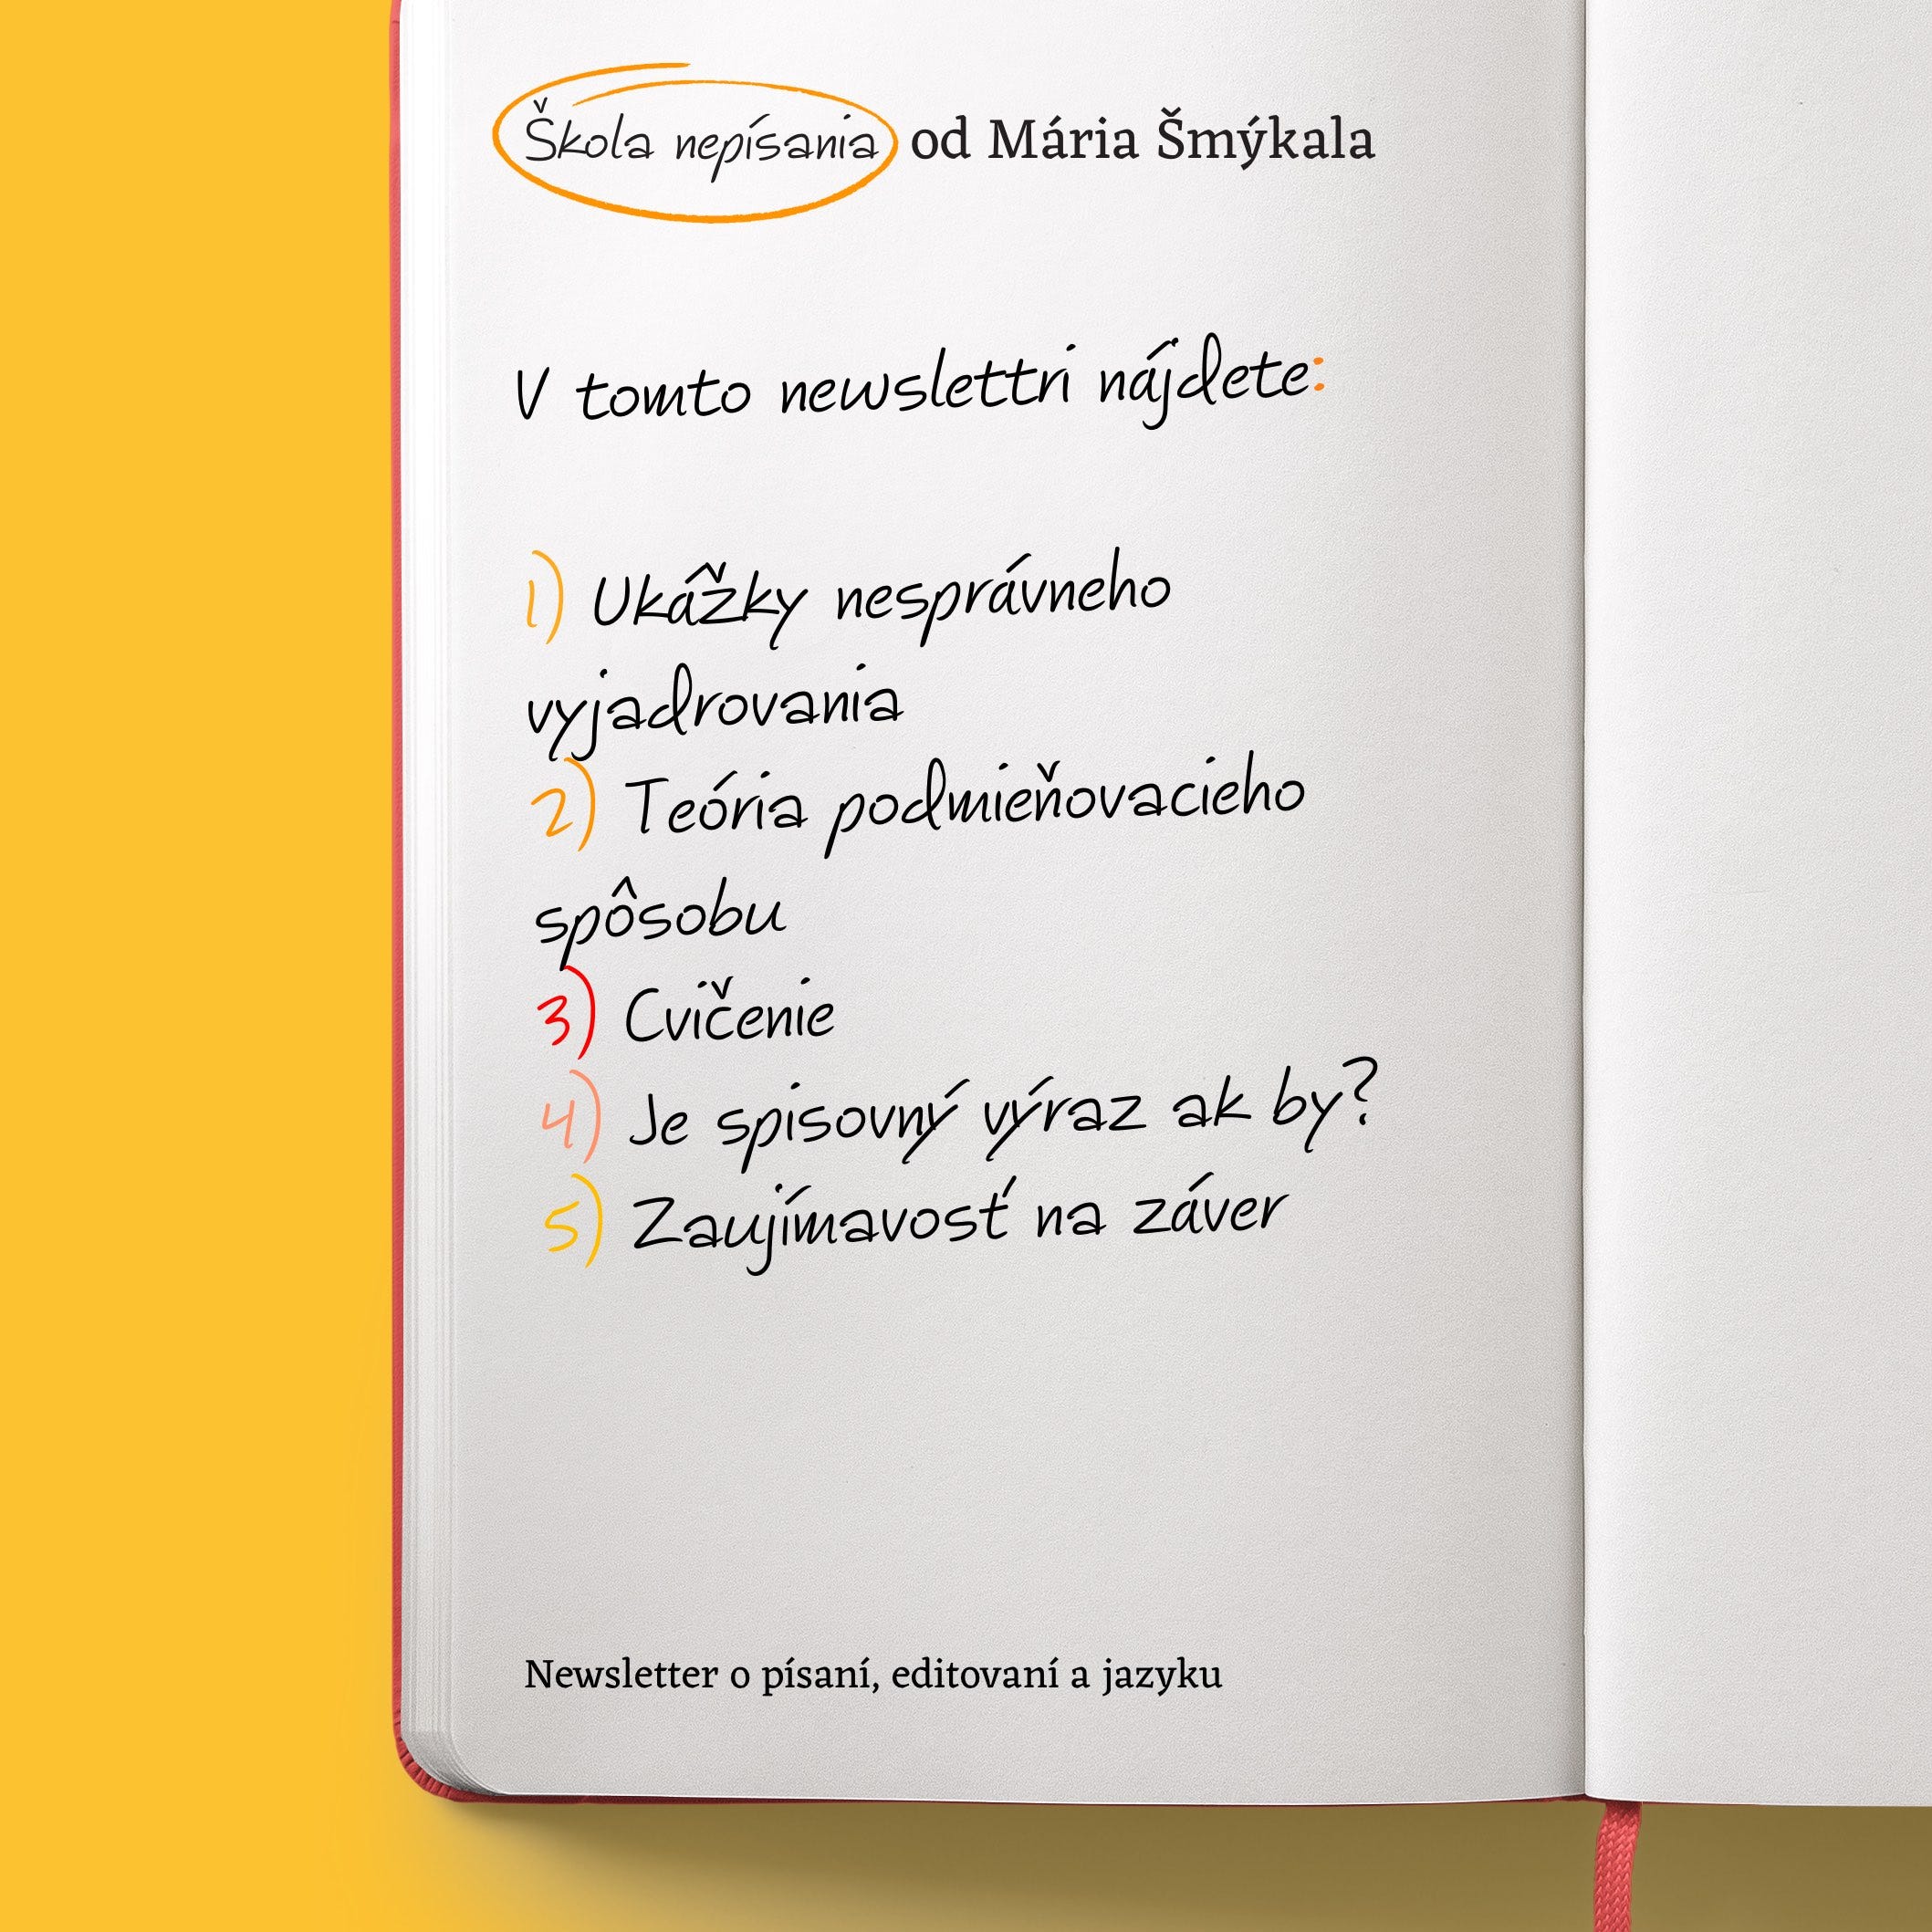 Škola nepísania od Mária Šmýkala
V tomto newslettri nájdete:
1) Ukážky nesprávneho
vyjadrovania
2) Teória podmieňovacieho
spôsobu
3) Cvičenie
4) Je spisovný výraz ak by?
5) Zaujímavosť na záver
Newsletter o písaní, editovaní a jazyku